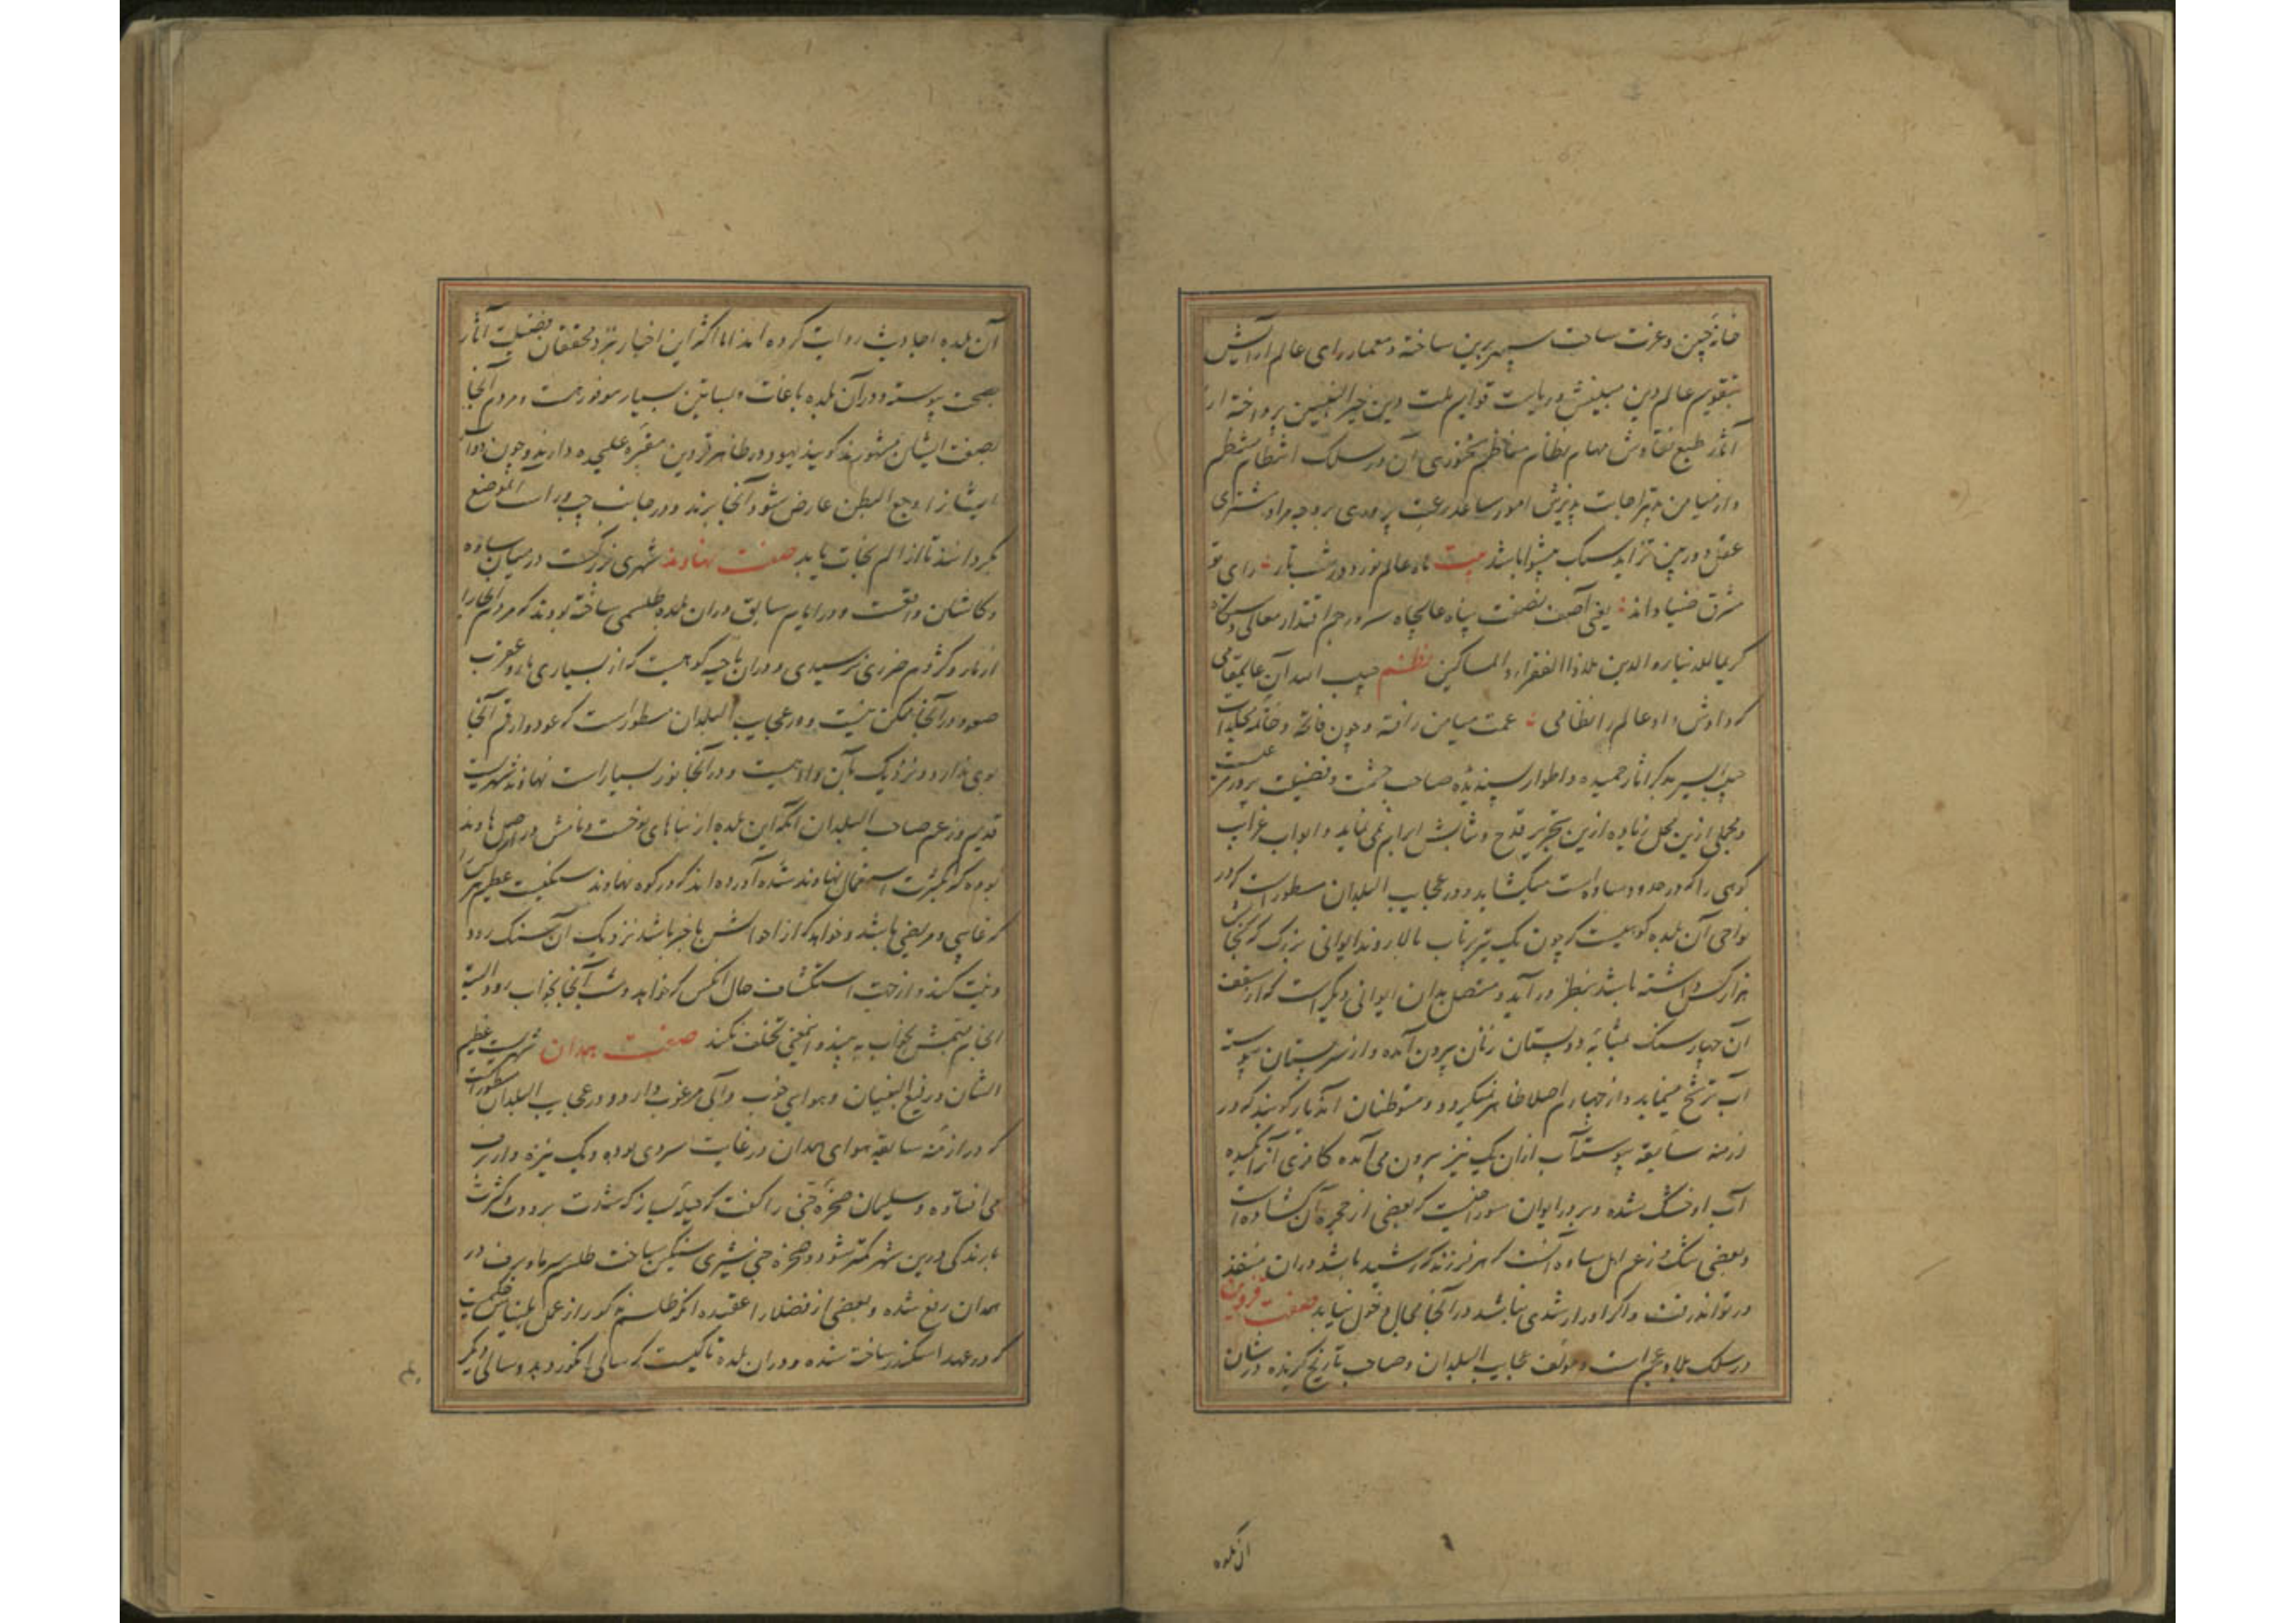 خانه چین و عزت ساحت سپهر برین ساخته و معمار رای عالم آرایش
بتقویم عالم دین مبینش و رایت قوایم ملت و دین خیر النبیین پرداخته از
آثار طبع نقادش مهام نظام مناظم سخنوری آن در سلک انتظام منتظم
و از میامن امور رعیت پروری بر وجه مراد مشتری
عقل دوربین نزاید سبک پیشوا باشد بیت ماه عالم نور دور شب تار رای تو
مشرق ضیا داند یعنی آصف نصفت پناه عالیجاه سرور جم اقتدار معالی دستگاه
کریما للدنیا و الدین ملاذا الفقرا و المساکین نظم حبیب الله آن عالیمقامی
که دادش داد عالم را نظامی عمت میامن رافته و چون فاتحه و خاتمه مجلدات
حبیب السیر بذکر آثار حمیده و اطوار پسندیده صاحب حشمت و فضیلت پرور
و مجلی ازین محل زیاده ازین تحریر مدح و ثنایش ابرام می نماید و ابواب غرایب
کوهی را که در حدود ساوه است میگشاید و در عجایب البلدان مسطور است که در
نواحی آن بلده کوهیست که چون یک تیر پرتاب بالا روند ایوانی بزرگ که گنجایش
هزار کس داشته باشد بنظر در آید و متصل بدان ایوانی دیگر است که از سقف
آن چهار سنگ بمثابه دو پستان زنان بیرون آمده و از سر پستان پیوسته
آب ترشح مینماید و از چهارم اصلا ظاهر نمیگردد و متوطنان آندیار گویند که در
ازمنه سابقه پیوسته آب ازان یک نیز بیرون می آمده کافری آنرا مکیده
آب او خشک شده و بر در ایوان سوراخیست که بعضی از حجره آن گشاده است
و بعضی تنگ و زعم اهل ساوه آنست که هر فرزند که رشید باشد دران منفذ
در تواند رفت و اگر او را رشدی نباشد در آنجا مجال دخول نیابد صفت قزوین
در سلک بلاد عجم است و مولف عجایب البلدان و صاحب تاریخ گزیده در شان
آن بلده
آن بلده احادیث روایت کرده اند اما اکثر این اخبار نزد محققان فضیلت آثار
بصحت پیوسته و در آن بلده باغات و بساتین بسیار موفور هست و مردم آنجا
بصفت ایشان مشهورند گویند یهود در ظاهر قزوین مقبره علیحده دارند و چون دواب
ایشانرا وجع البطن عارض شود آنجا برند و در جانب چپ و راست آنموضع
بگردانند تا از الم نجات یابد صفت نهاوند شهری بزرگست در میان ساوه
و کاشان واقعست و در ایام سابق دران بلده طلسمی ساخته بودند که مردم آنجا را
از مار و کژدم ضرری نرسیدی و دران ناحیه کوهیست که از بسیاری مار و عقرب
صعود در آنجا ممکن نیست و در عجایب البلدان مسطور است که عود دار قم آنجا
بوی ندارد و نزدیک بآن وادیست و در آنجا بوز بسیار است نهاوند شهریست
قدیم و زعم صاحب البلدان آنکه این بلده از بناهای نوحست و نامش در اصل نوح آوند
بوده که بکثرت استعمال نهاوند شده آورده اند که در کوه نهاوند سنگیست عظیم هر کس را
که غایبی و مریضی باشد و خواهد که از احوالش باخبر باشد نزدیک آن سنگ رود
و نیت کند و از جهت استکشاف حال آنکس که خواهد و شب آنجا بخواب رود البته
انجام مهمش بخواب به بیند و اینمعنی تخلف نکند صفت همدان شهریست عظیم
الشان و رفیع البنیان و هوای خوب و آبی مرغوب دارد و در عجایب البلدان مسطور است
که در ازمنه سابقه هوای همدان در غایت سردی بوده و یک نیزه وار برف
می افتاده و سلیمان صخره جنی را گفت که حیله ساز که شدت برودت و کثرت
بارندگی درین شهر کمتر شود و صخره جنی شیری سنگین ساخت طلسم سرما و برف در
همدان رفع شده و بعضی از فضلا را عقیده آنکه طلسم مذکور از عمل بلیناس حکیمست
که در عهد اسکندر ساخته شده و دران بلده تاکیست که سالی انگور دهد و سالی دیگر